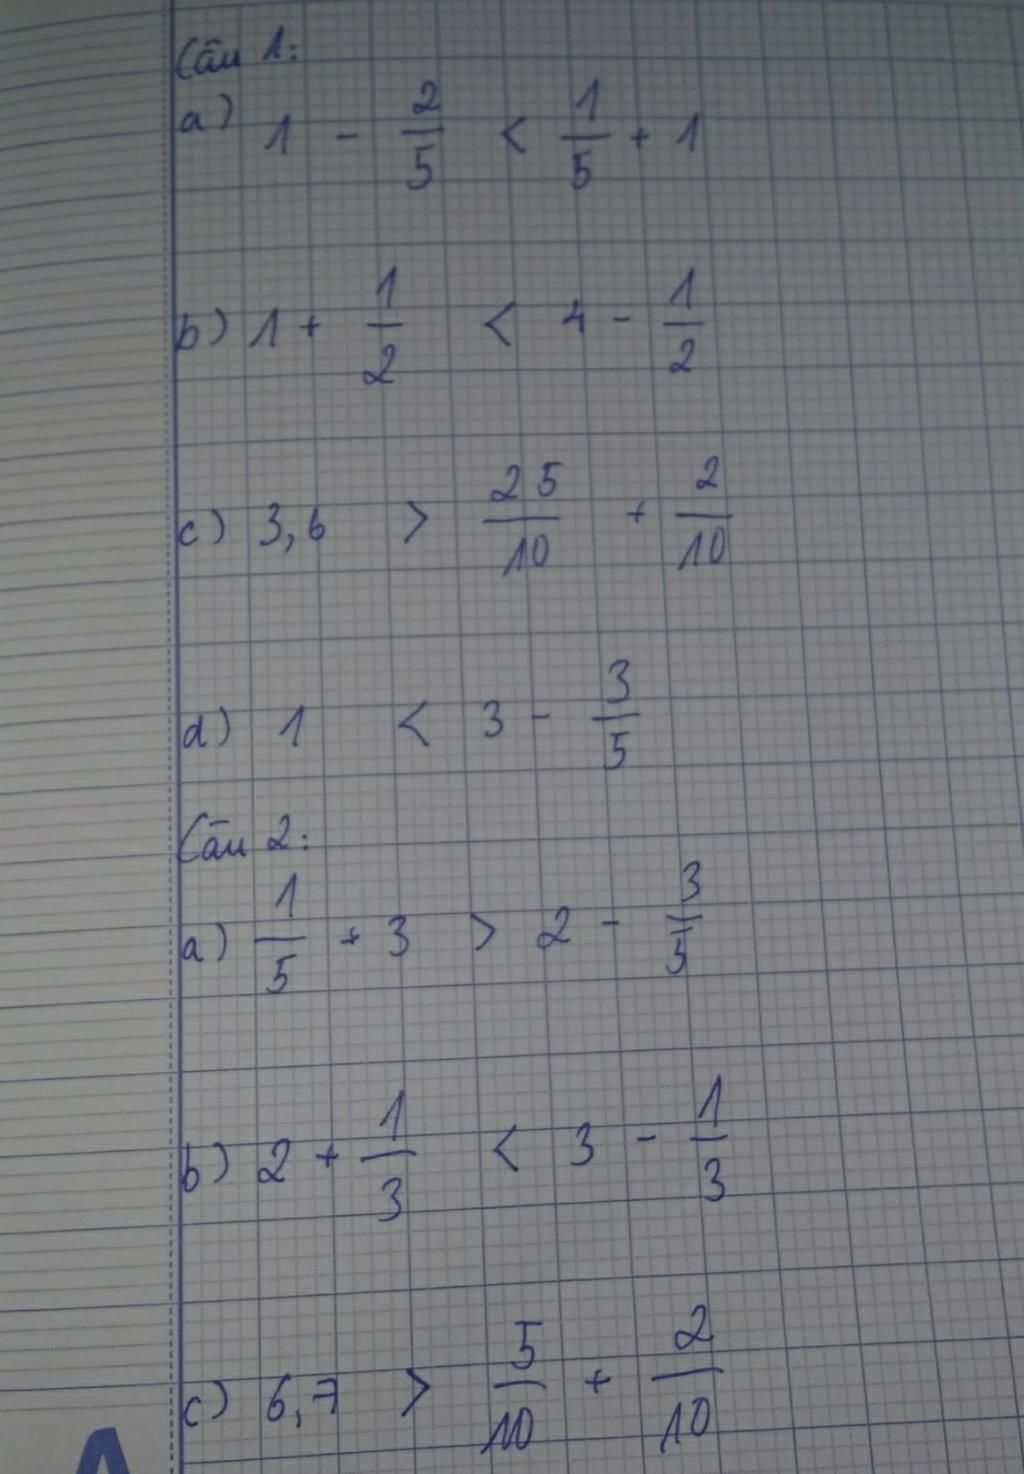 Câu 1:
a) 1 - 2/5 < 1/5 + 1
b) 1 + 1/2 < 4 - 1/2
c) 3,6 > 25/10 + 2/10
d) 1 < 3 - 3/5
Câu 2:
a) 1/5 + 3 > 2 - 3/5
b) 2 + 1/3 < 3 - 1/3
c) 6,7 > 5/10 + 2/10